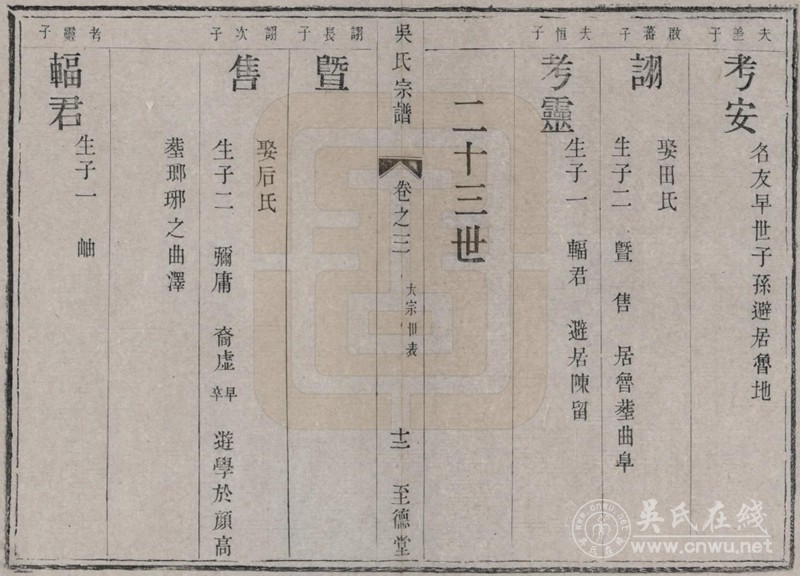 夫差子
考安
名友早世子孫避居魯地
啟蕃子
詡
娶田氏
生子二 暨 售 居魯塟曲阜
夫恒子
考靈
生子一 輻君 避居陳留
二十三世
吳氏宗譜 卷之三 大宗世表 十二 至德堂
詡長子
暨
詡次子
售
娶后氏
生子二 彌庸 裔虛 早卒 遊學於顏高
塟瑯琊之曲澤
考靈子
輻君
生子一 岫
吳氏在线
www.cnwu.net